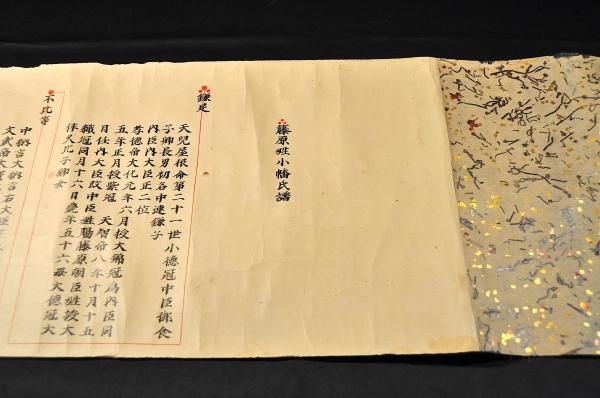 藤原姓小幡氏譜
鎌足
天児屋根命第二十一世小德冠中臣御食
子卿長男初名中連鎌子
内臣内大臣正二位
孝德帝大化元年六月授大錦冠為内臣同
五年正月授紫冠 天智帝八年十月十五
日任内大臣改中臣姓賜藤原朝臣姓授大
織冠同月十六日薨年五十六母大德冠大
伴久比子卿女
不比等
中納言大納言右大臣
文武帝大寶